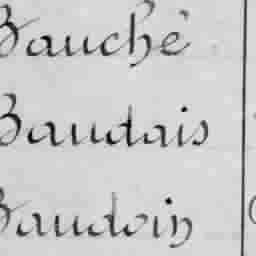 Bauché
Baudais
Baudoin